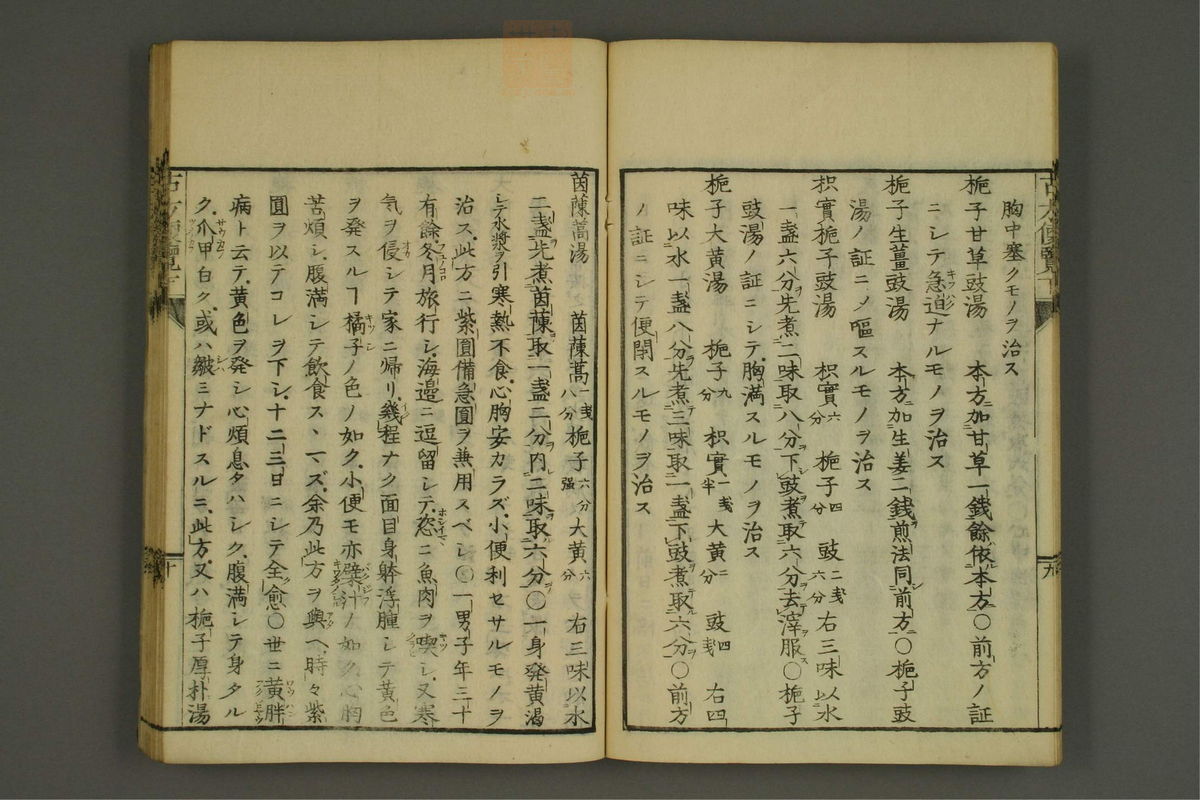 胸中塞クモノヲ治ス
梔子甘草豉湯 本方加甘草一錢餘依本方○前方ノ証
ニシテ急迫ナルモノヲ治ス
梔子生薑豉湯 本方加生姜二錢煎法同前方○梔子豉
湯ノ証ニノ嘔スルモノヲ治ス
枳實梔子豉湯 枳實六分 梔子四分 豉二戔六分 右三味以水
一盞六分先煮二味取八分下豉煮取六分去滓服○梔子
豉湯ノ証ニシテ胸満スルモノヲ治ス
梔子大黄湯 梔子九分 枳實一戔半 大黄二分 豉四戔 右四
味以水一盞八分先煮三味取一盞下豉煮取六分○前方
ノ証ニシテ便閉スルモノヲ治ス
九
茵蔯蒿湯 茵蔯蒿一戔八分 梔子六分强 大黄六分 右三味以水
二盞先煮茵蔯取一盞二分内二味取六分○一身発黄渇
シテ水漿ヲ引寒熱不食心胸安カラズ小便利セサルモノヲ
治ス此方ニ紫圓備急圓ヲ兼用スベシ○一男子年三十
有餘冬月旅行シ海邉ニ逗留シテ恣ニ魚肉ヲ喫シ又寒
気ヲ侵シテ家ニ帰リ幾程ナク面目身躰浮腫シテ黄色
ヲ発スルヿ橘子ノ色ノ如ク小便モ亦檗汁ノ如ク心胸
苦煩シ腹満シテ飲食スヽマズ余乃此方ヲ與ヘ時々紫
圓ヲ以テコレヲ下シ十二三日ニシテ全愈○世ニ黄胖
病ト云テ黄色ヲ発シ心煩息タハシク腹満シテ身タル
ク爪甲白ク或ハ皺ミナドスルニ此方又ハ梔子厚朴湯
十